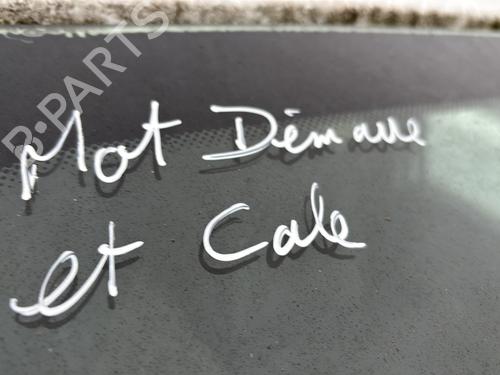 B-PARTS
Mot Démarre
et Cale